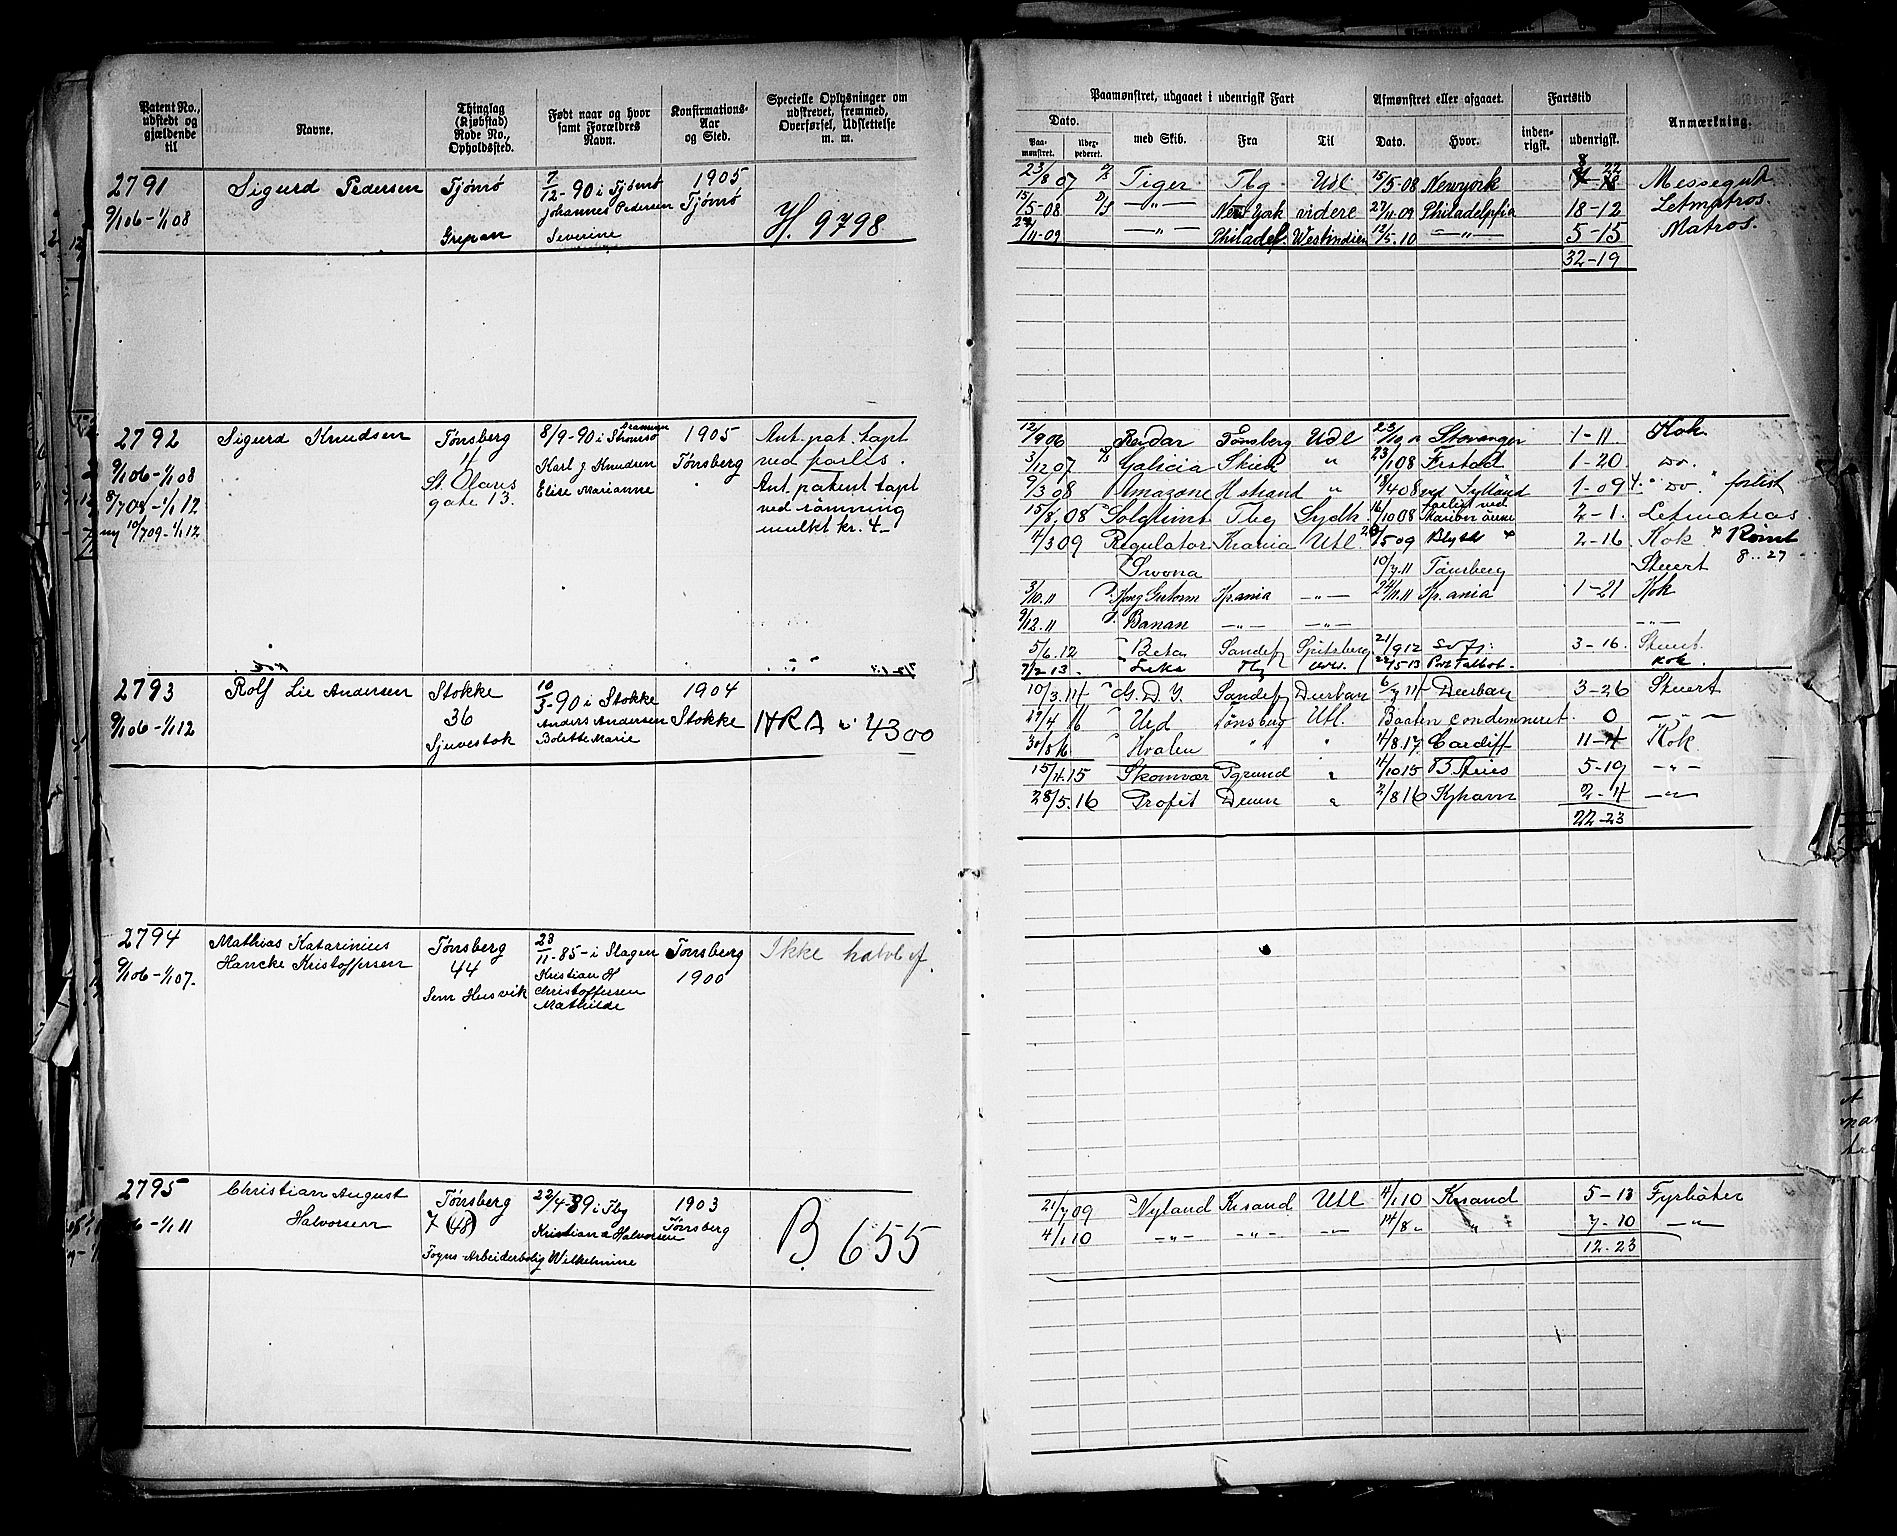 Patent No., udstedt og gjældende til
Navne.
Thinglag (Kjøbstad) Rode No., Opholdssted.
Født naar og hvor samt Forældres Navn.
Konfirmations-Aar og Sted.
Specielle Oplysninger om udskrevet, fremmed, Overførsel, Udslettelse m. m.
2791
9/1 06 - 1/1 08
Sigurd Pedersen
Tjömö
Grepan
7/12 - 90 i Tjömö
Johannes Pedersen
Severine
1905
Tjömö
H. 9798
2792
9/1 06 - 1/1 08
8/7 08 - 1/1 12
ny 10/7 09 - 1/1 12
Sigurd Knudsen
Tönsberg
St. Olavs
gate 13.
8/9 - 90 i Strömsö
Drammen
Karl J. Knudsen
Elise Marianne
1905
Tönsberg
Ant. pat. tapt
ved forlis.
Ant. patent tapt
ved römning
mulkt kr. 4
2793
9/1 06 - 1/1 12
Rolf Lie Andersen
Stokke
36
Sjuvestok
10/3 - 90 i Stokke
Anders Andersen
Bolette Marie
1904
Stokke
HRA 4300
2794
9/1 06 - 1/1 07.
Mathias Katarinius
Hancke Kristoffersen
Tönsberg
44
Sem Husvik
23/11 - 85 - i Slagen
Kristian H
Christoffersen
Mathilde
Tonsberg
1900
Ikke
2795
06 - 1/1 11
Christian August
Halvorsen
Tönsberg
7 (48)
Arbeiderbolig
22/4 - 89 i Tbg
Halvorsen
Wilhelmine
1903
Tönsberg
B 655
Paamønstret, udgaaet i udenrigsk Fart
Afmønstret eller afgaaet.
Fartstid
Anmærkning.
Dato.
Paa-mønstret.
med Skib.
Fra
Til
Dato.
Hvor.
inden-rigsk.
udenrigsk.
23/8 07 Tiger Tbg Udl 15/5-08 Newyork 8 22 Messegut
15/5-08 - " - New York videre 27/11-09 Philadelpfia 18-12 Letmatros.
27/11-09 - " - Philadel. Westindien 12/5.10 - " - 5-15 Matros.
32-19
12/9 06 Reidar Tönsberg Udl Stavanger 1-11 Kok
3/12 07 Galicia Skien " 23/1 08 1-20 Do.
9/3 08 Amazone Hstrand " ved Jylland 1-09 " Do. " forlist
15/8 08 Solglimt Tbg forlist ved 2-1. Letmatros
4/3 09 Regulator Krania Utl. /5 09 Blyth 2-16 Kok Römt
Svona 10/7 11 Tönsberg Stuert 8..27
3/10.11 Kong Guttorm Kr.ania - " - 24/11.11 Kr.ania 1-21 Kok
9/12.11 Banan - " - - " - - " -
5/6.12 Beta Sandefj Spitsberg 21/9 12 3-16 Stuert
7/2 13 Tbg Port Talbot Kok.
10/3.14 G.D.Y. Sandefj Durban 6/7 14 Durban 3-26 Stuert
Urd Tönsberg Utl. Baaten condemneret. 0 - " -
Hvalen " " 4/8.17. Cardiff 11-4 Kok
15/4.15 Skomvær Pgrund " 4/10 15 5-19 - " -
28/5.16 Profit " 2/8 16 Kjhavn 2-4 - " -
22-23
21/7 09 Nyland Krsand Utl 4/1 10 Krsand 5-13 Fyrböter
4/1 10 - " - - " - - " - 14/8 " " 7-10 - " -
12-23